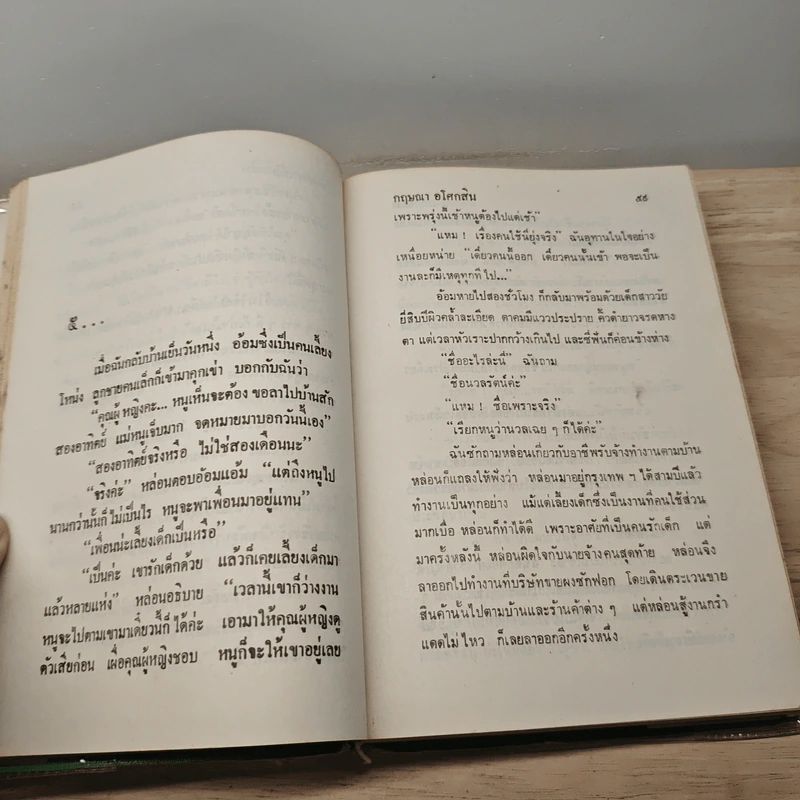 ๕...
เมื่อฉันกลับบ้านเย็นวันหนึ่ง อ้อมซึ่งเป็นคนเลี้ยง
โหน่ง ลูกชายคนเล็กก็เข้ามาคุกเข่า บอกกับฉันว่า
“คุณผู้หญิงคะ... หนูเห็นจะต้อง ขอลาไปบ้านสัก
สองอาทิตย์ แม่หนูเจ็บมาก จดหมายมาบอกวันนี้เอง”
“สองอาทิตย์จริงหรือ ไม่ใช่สองเดือนนะ”
“จริงค่ะ” หล่อนตอบอ้อมแอ้ม “แต่ถึงหนูไป
นานกว่านั้นก็ไม่เป็นไร หนูจะพาเพื่อนมาอยู่แทน”
“เพื่อนน่ะเลี้ยงเด็กเป็นหรือ”
“เป็นค่ะ เขารักเด็กด้วย แล้วก็เคยเลี้ยงเด็กมา
แล้วหลายแห่ง” หล่อนอธิบาย “เวลานี้เขาก็ว่างงาน
หนูจะไปตามเขามาเดี๋ยวนี้ก็ได้ค่ะ เอามาให้คุณผู้หญิงดู
ตัวเสียก่อน เผื่อคุณผู้หญิงชอบ หนูก็จะให้เขาอยู่เลย
กฤษณา อโศกสิน ๕๕
เพราะพรุ่งนี้เช้าหนูต้องไปแต่เช้า”
“แหม ! เรื่องคนใช้นี่ยุ่งจริง” ฉันอุทานในใจอย่าง
เหนื่อยหน่าย “เดี๋ยวคนนี้ออก เดี๋ยวคนนั้นเข้า พอจะเป็น
งานละก็มีเหตุทุกทีไป...”
อ้อมหายไปสองชั่วโมง ก็กลับมาพร้อมด้วยเด็กสาววัย
ยี่สิบปีผิวคล้ำละเอียด ตาคมมีแววประปราย คิ้วดำยาวจรดหาง
ตา แต่เวลาหัวเราะปากกว้างเกินไป และซี่ฟันก็ค่อนข้างห่าง
“ชื่ออะไรล่ะนี่” ฉันถาม
“ชื่อนวลรัตน์ค่ะ”
“แหม ! ชื่อเพราะจริง”
“เรียกหนูว่านวลเฉย ๆ ก็ได้ค่ะ”
ฉันซักถามหล่อนเกี่ยวกับอาชีพรับจ้างทำงานตามบ้าน
หล่อนก็แถลงให้ฟังว่า หล่อนมาอยู่กรุงเทพ ฯ ได้สามปีแล้ว
ทำงานเป็นทุกอย่าง แม้แต่เลี้ยงเด็กซึ่งเป็นงานที่คนใช้ส่วน
มากเบื่อ หล่อนก็ทำได้ดี เพราะอาศัยที่เป็นคนรักเด็ก แต่
มาครั้งหลังนี้ หล่อนผิดใจกับนายจ้างคนสุดท้าย หล่อนจึง
ลาออกไปทำงานที่บริษัทขายผงซักฟอก โดยเดินตระเวนขาย
สินค้านั้นไปตามบ้านและร้านค้าต่าง ๆ แต่หล่อนสู้งานกรำ
แดดไม่ไหว ก็เลยลาออกอีกครั้งหนึ่ง